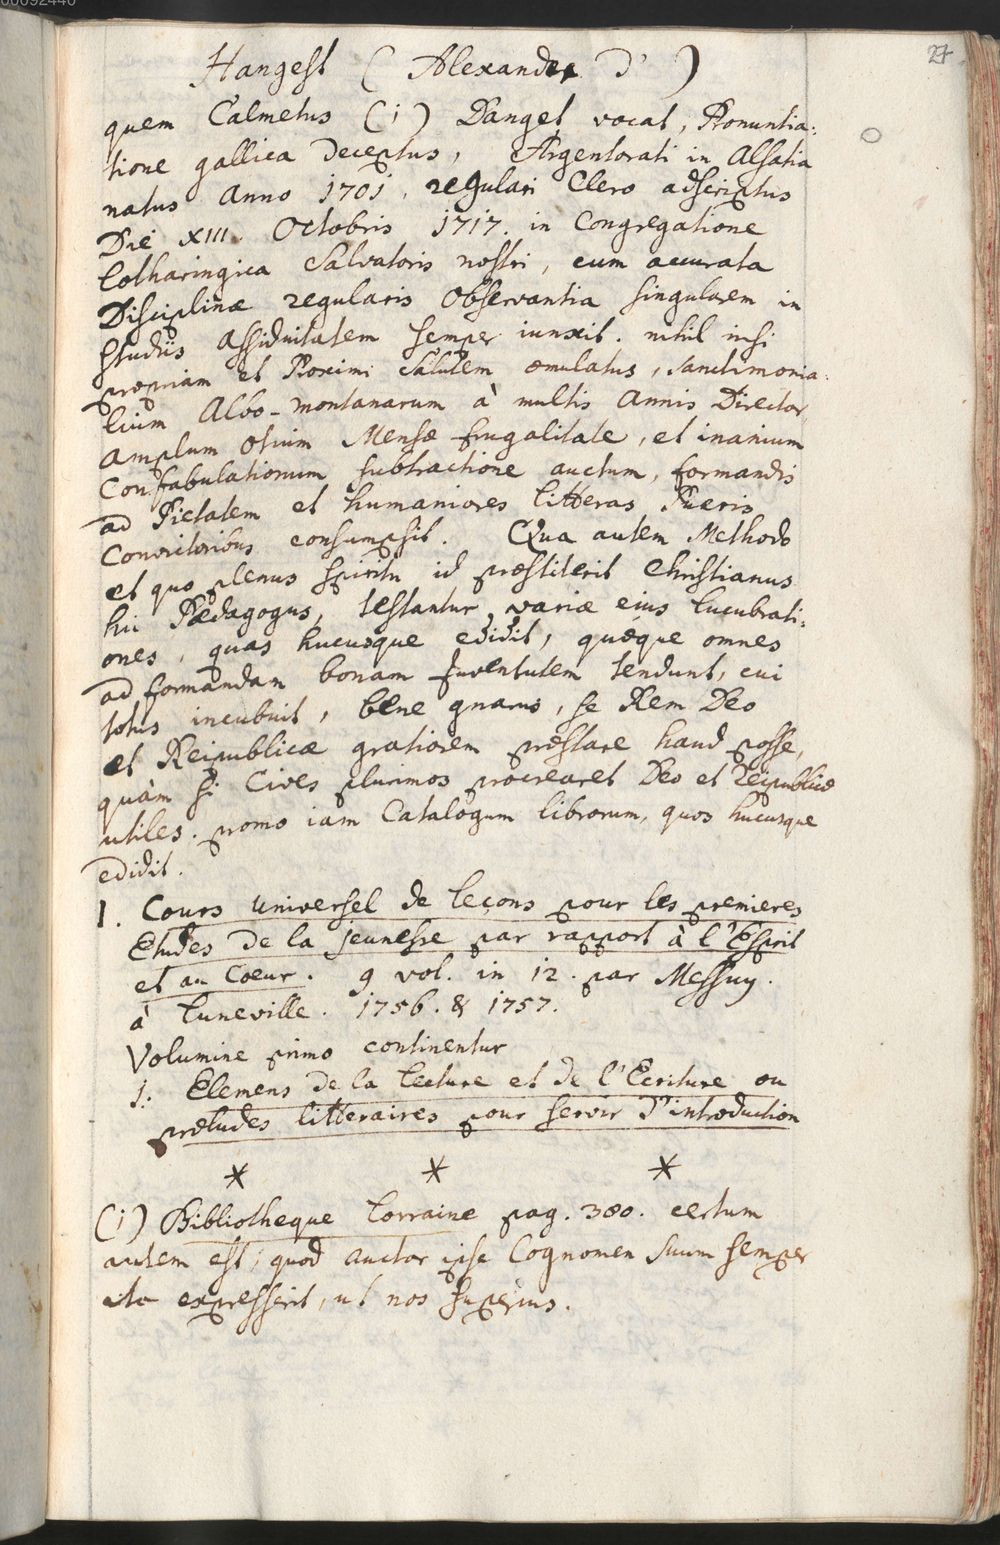 00092440
27
Hangest ( Alexander d' )
quem Calmetus (1) Danget vocat, Pronuntia:
tione gallica deceptus, Argentorati in Alsatia
natus Anno 1701, regulari Clero adscriptus
Die XIII. Octobris 1717. in Congregatione
Lotharingica Salvatoris nostri, cum accurata
Disciplinæ regularis Observantia singularem in
studiis Assiduitatem semper iunxit. nihil nisi
propriam et Proximi salutem æmulatus, sanctimonia:
lium Albo-montanarum à multis Annis Director,
amplum otium Mensæ frugalitate, et inanium
Confabulationum subtractione auctum, formandis
ad Pietatem et humaniores litteras Pueris
Convictoribus consumpsit. Qua autem Methodo
et quo plenus spiritu id præstiterit Christianus
hic Pædagogus, testantur variæ eius lucubrati:
ones, quas hucusque edidit, quæque omnes
ad formandam bonam Juventutem tendunt, cui
totus incubuit, bene gnarus, se Rem Deo
et Reipublicæ gratiorem præstare haud posse,
quàm si Cives plurimos procrearet Deo et Reipublicæ
utiles. promo iam Catalogum librorum, quos hucusque
edidit.
1. Cours universel de leçons pour les premieres
Etudes de la jeunesse par rapport à l'Esprit
et au Coeur. 9 vol. in 12. par Messuy.
à Luneville. 1756. & 1757.
Volumine primo continentur
1. Elemens de la Lecture et de l'Ecriture ou
præludes litteraires pour servir d'introduction
* * *
(1) Bibliotheque Lorraine pag. 380. certum
autem est, quod auctor ipse Cognomen suum semper
ita expresserit, ut nos superius.